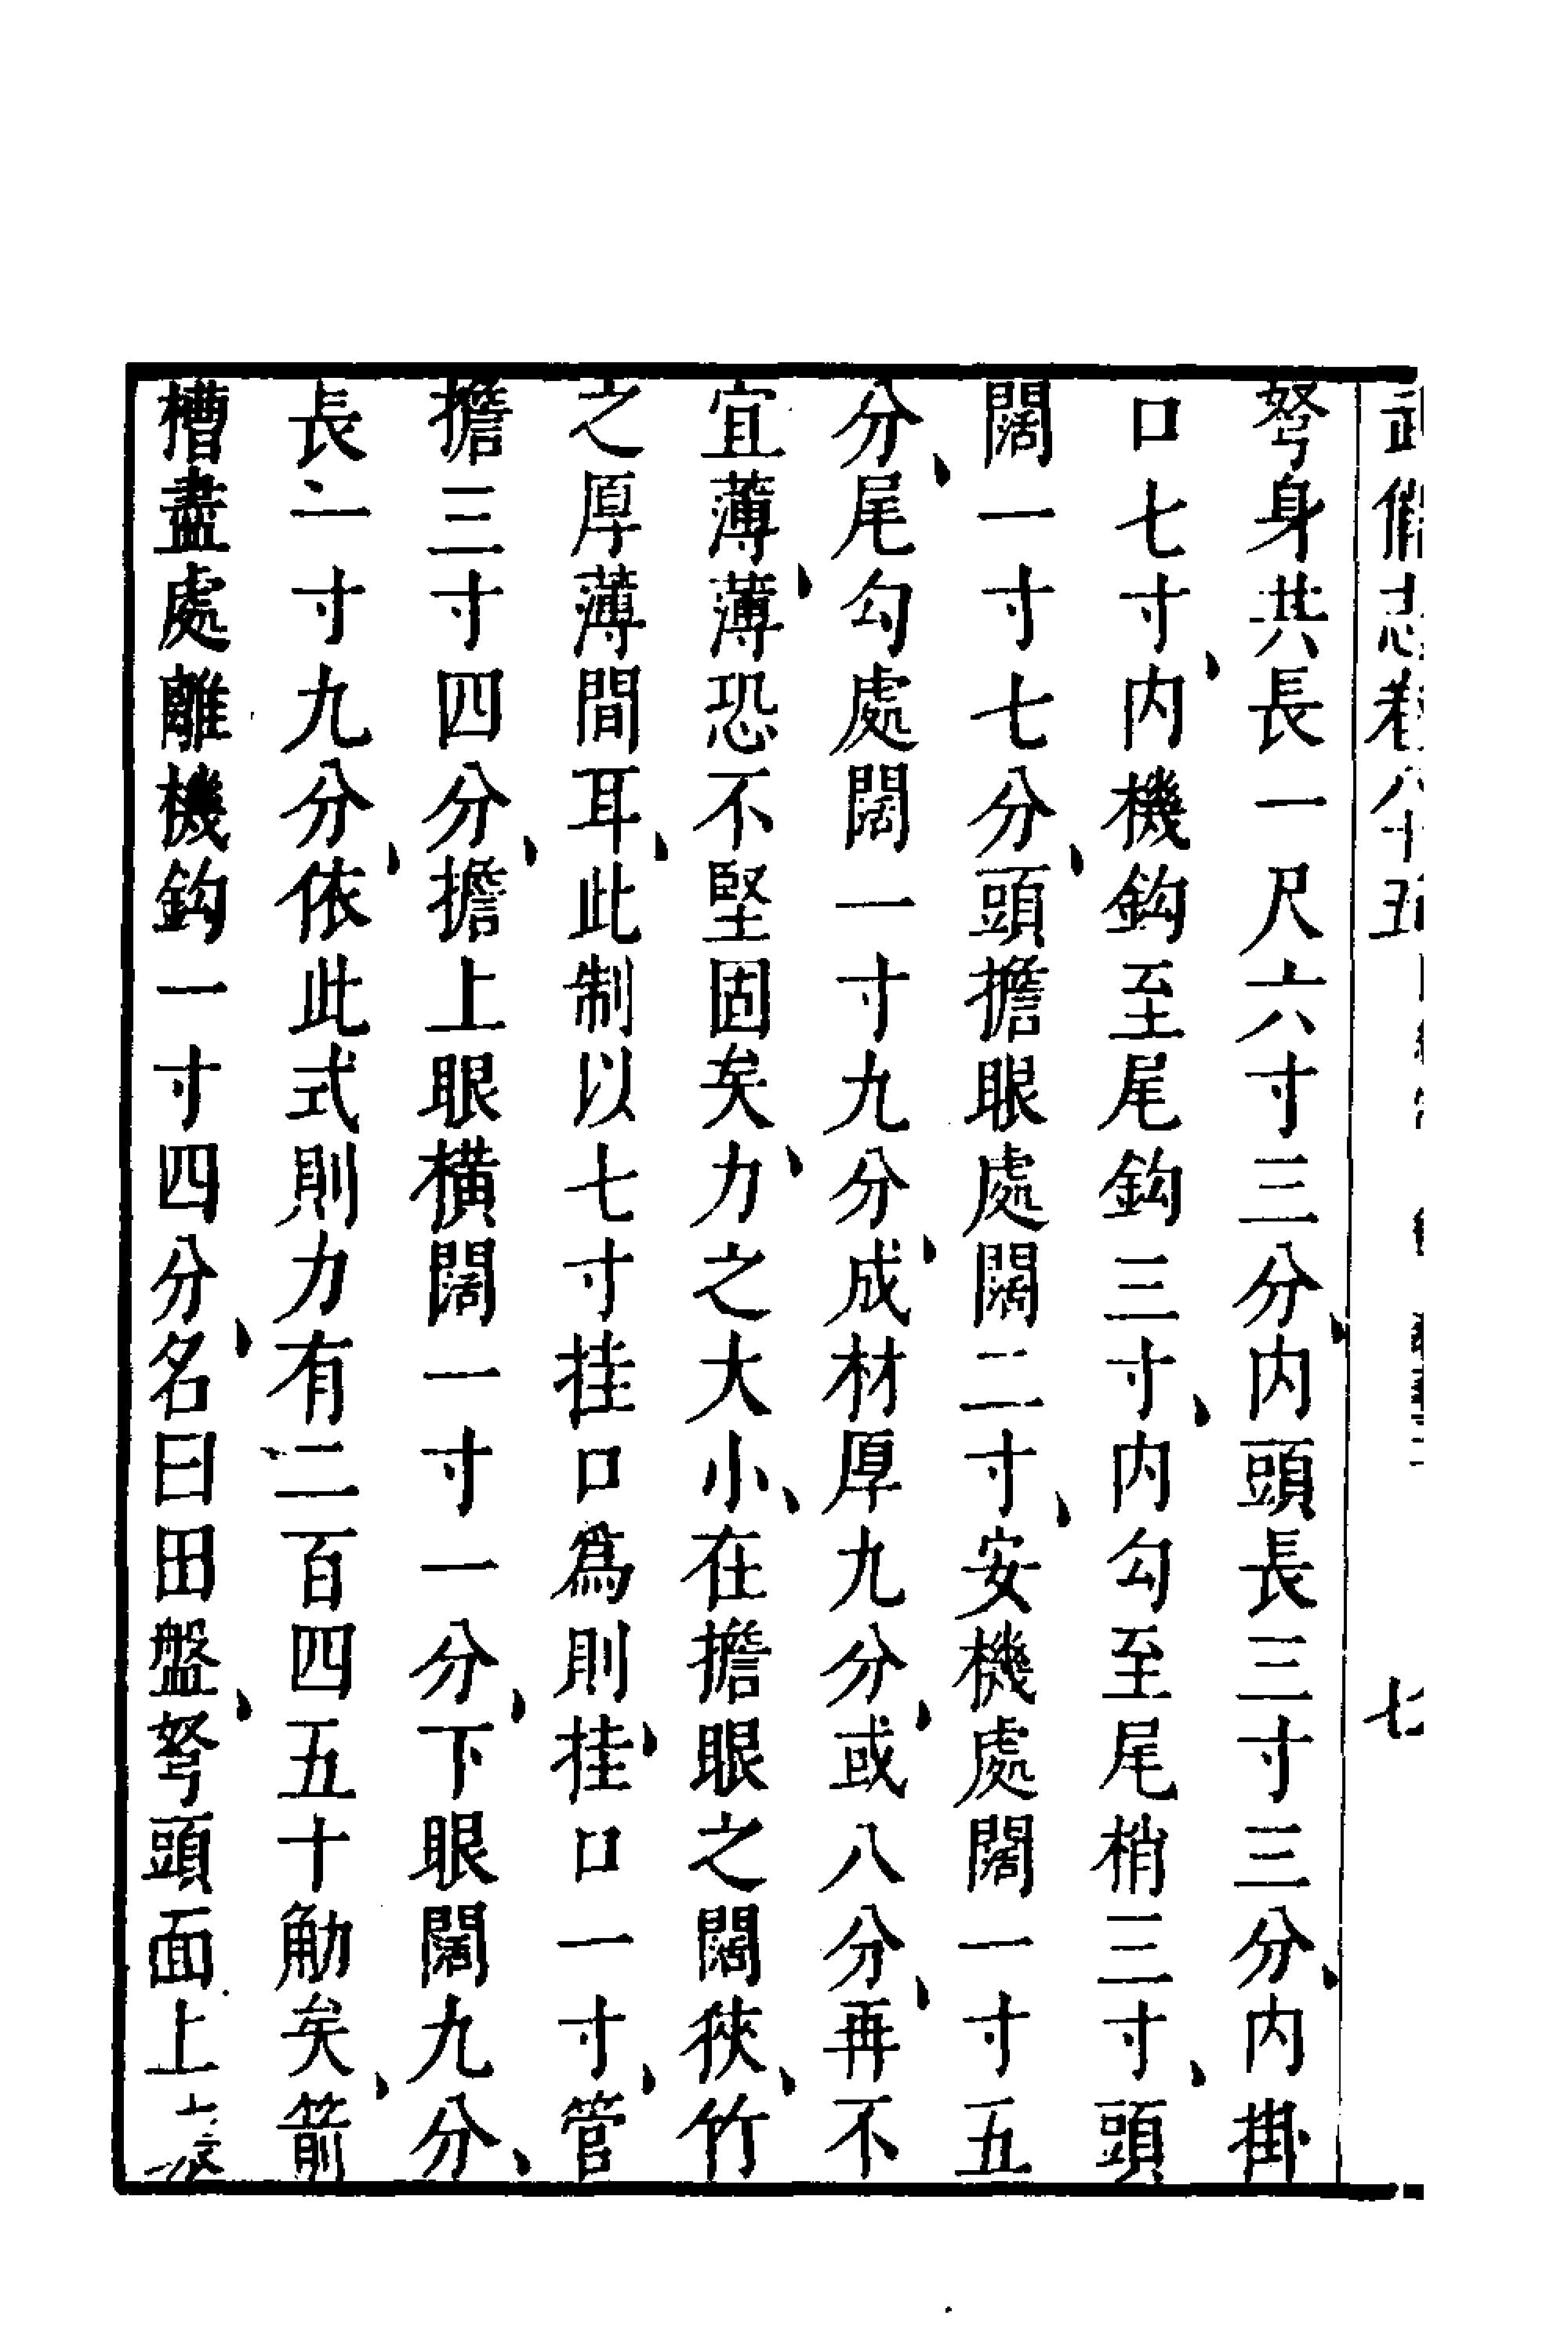 武備志卷八十五
七
弩身共長一尺六寸三分内頭長三寸三分、内掛
口七寸、内機鈎至尾鈎三寸、内勾至尾梢三寸、頭
闊一寸七分、頭擔眼處闊二寸、安機處闊一寸五
分、尾勾處闊一寸九分、成材厚九分、或八分、再不
宜薄、薄恐不堅固矣、力之大小、在擔眼之闊狹、竹
之厚薄間耳、此制以七寸挂口爲則、挂口一寸、管
擔三寸四分、擔上眼横闊一寸一分、下眼闊九分、
長二寸九分、依此式則力有二百四五十觔矣、箭
槽盡處離機鈎一寸四分、名曰田盤、弩頭面上